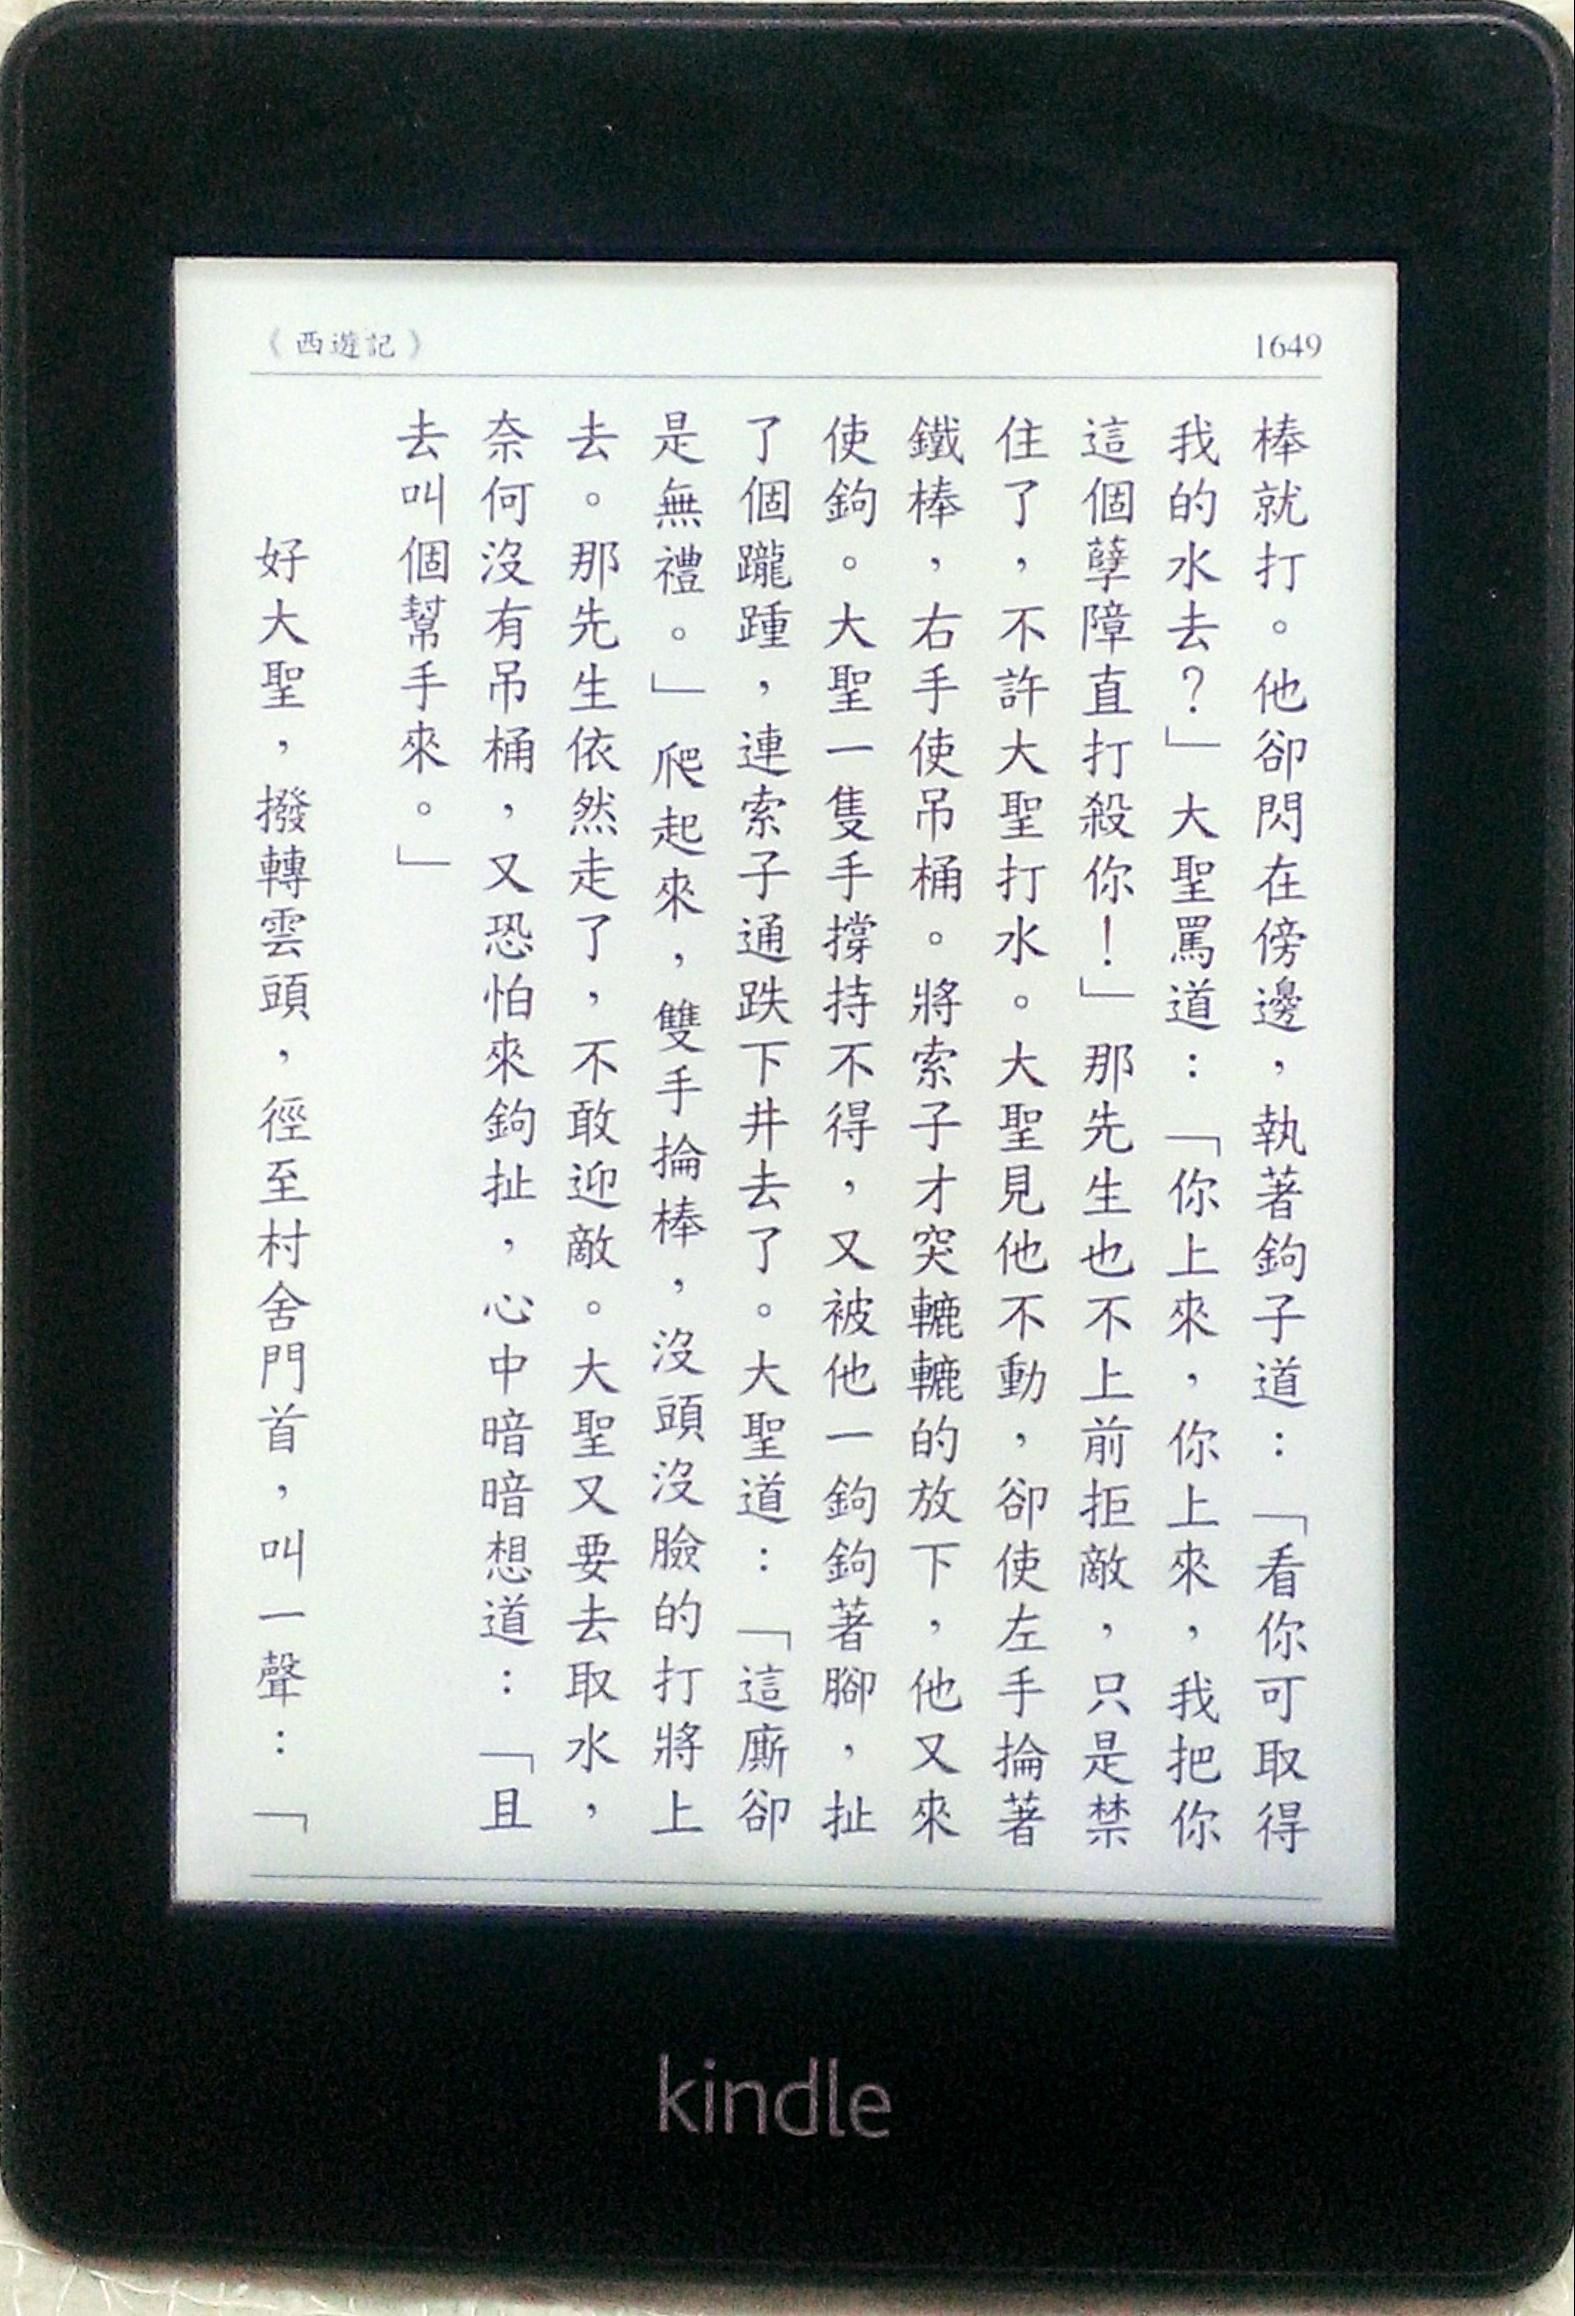 《西遊記》
1649
棒就打。他卻閃在傍邊，執著鉤子道：「看你可取得
我的水去？」大聖罵道：「你上來，你上來，我把你
這個孽障直打殺你！」那先生也不上前拒敵，只是禁
住了，不許大聖打水。大聖見他不動，卻使左手掄著
鐵棒，右手使吊桶。將索子才突轆轆的放下，他又來
使鉤。大聖一隻手撐持不得，又被他一鉤鉤著腳，扯
了個躘踵，連索子通跌下井去了。大聖道：「這廝卻
是無禮。」爬起來，雙手掄棒，沒頭沒臉的打將上
去。那先生依然走了，不敢迎敵。大聖又要去取水，
奈何沒有吊桶，又恐怕來鉤扯，心中暗暗想道：「且
去叫個幫手來。」
好大聖，撥轉雲頭，徑至村舍門首，叫一聲：「
kindle